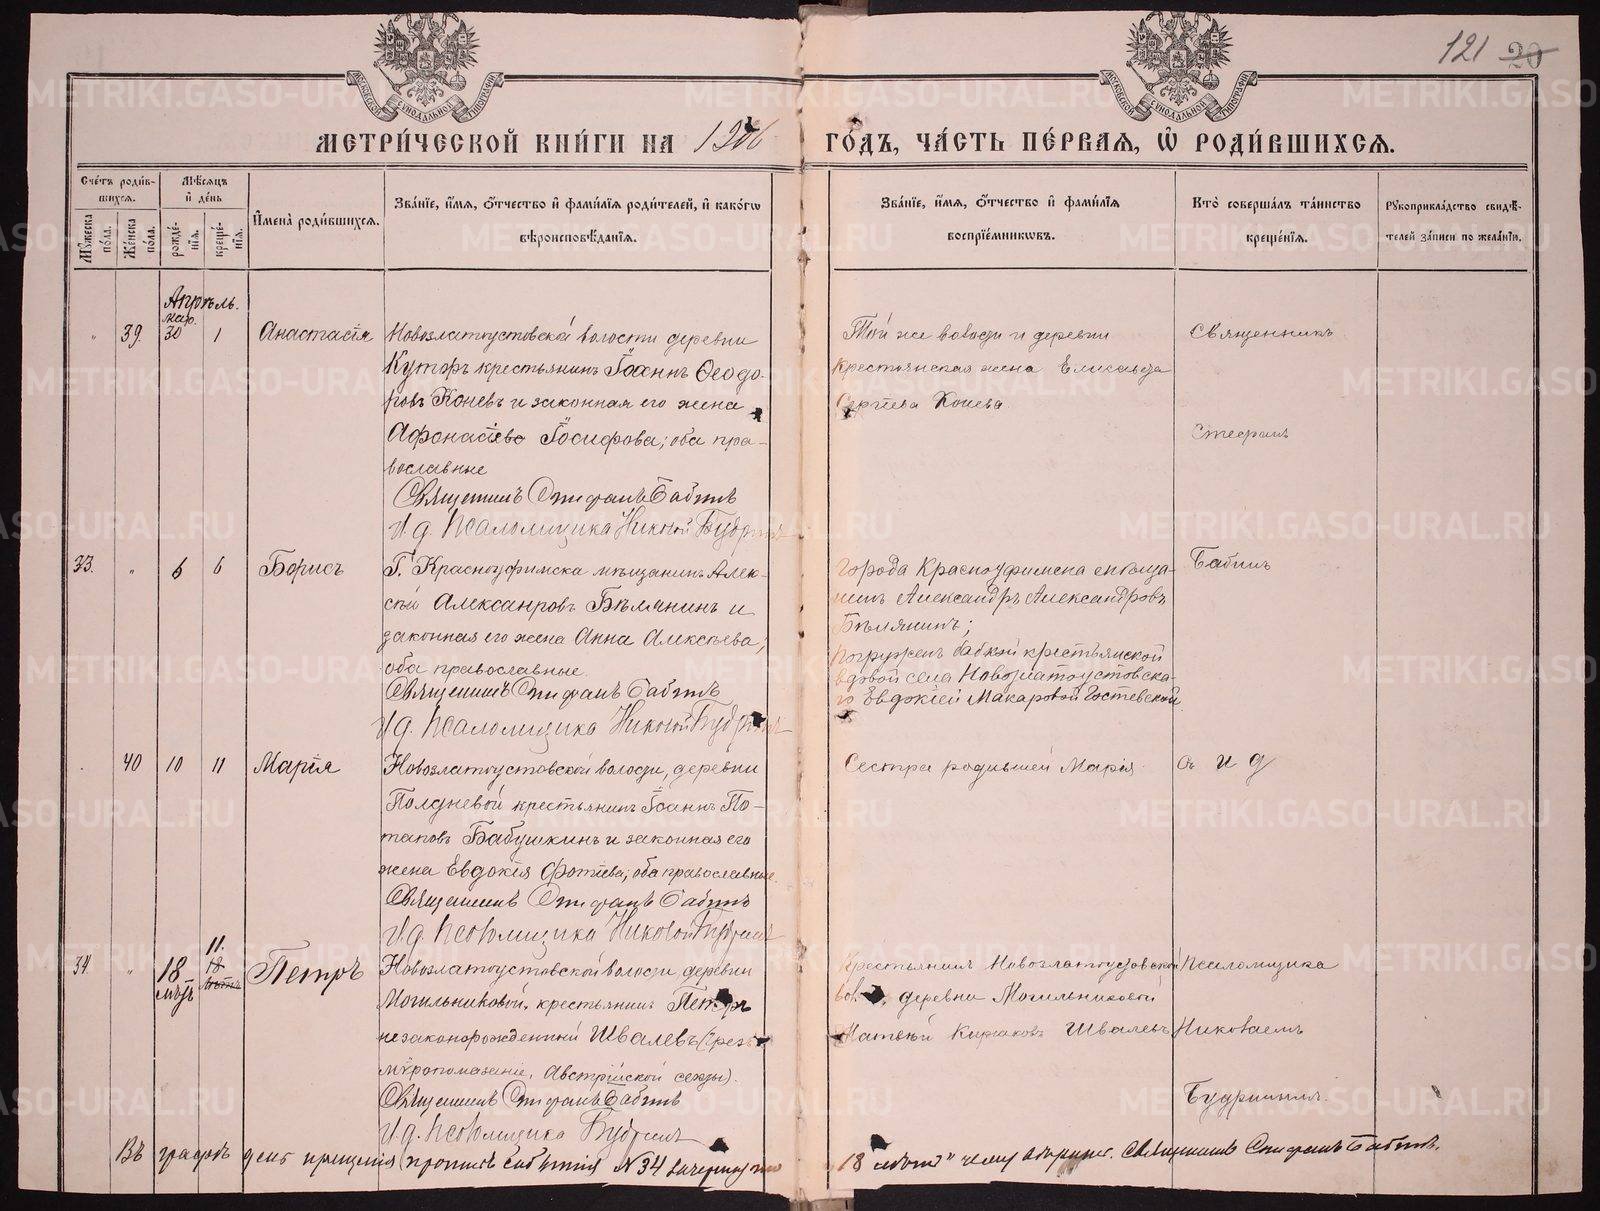 121 20
МЕТРИ́ЧЕСКОЙ КНИ́ГИ НА 1906 ГО́ДЪ, ЧА́СТЬ ПЕ́РВАЯ, Ѿ РОДИ́ВШИХСЯ.
Сче́тъ роди́вшихся.
Му́жеска по́ла.
Же́нска по́ла.
Мѣ́сяцъ и де́нь
рожде́нїя.
креще́нїя.
И́мена̀ роди́вшихся.
Зва́нїе, и́мя, о́тчество и фами́лїя роди́телей, и како́гѡ
вѣроисповѣ́данїя.
Зва́нїе, и́мя, о́тчество и фами́лїя
воспрїе́мникѡвъ.
Кто̀ соверша́лъ та́инство
креще́нїя.
Рꙋкоприкла́дство свидѣ́телей за́писи по жела́нїи.
Апрѣль.
мар.
" 39. 30 1 Анастасія
Новозлатоустовской волости деревни
Кутыръ крестьянинъ Іоаннъ Ѳеодо-
ровъ Коневъ и законная его жена
Афанасіева Іосифова; оба пра-
вославные
Священникъ Стефанъ Бабинъ
И. д. Псаломщика Николай Будринъ
Той же волости и деревни
крестьянская жена Елисавета
Сергіева Конева
Священникъ
Стефанъ
33. " 6 6 Борисъ
Г. Красноуфимска мѣщанинъ Алек-
сѣй Алексанровъ Бѣлянинъ и
законная его жена Анна Алексѣева;
оба православные.
Священникъ Стефанъ Бабинъ
И. д. Псаломщика Николай Будринъ
города Красноуфимска мѣща-
нинъ Александръ Александровъ
Бѣлянинъ;
погруженъ бабкой крестьянской
вдовой села Новозлатоустовска-
го Евдокіей Макаровой Гостевской
Бабинъ
40 10 11 Марія
Новозлатоустовской волости, деревни
Полдневой крестьянинъ Іоаннъ По-
таповъ Бабушкинъ и законная его
жена Евдокія Фотіева; оба православные.
Священникъ Стефанъ Бабинъ
И. д. Псаломщика Николай Будринъ
Сестра родившей Марія
Съ и д
11.
34 " 18 18 Петръ
Новозлатоустовской волости деревни
Могильниковой, крестьянинъ Петръ
незаконорожденный Швалевъ (чрезъ
мѵропомазаніе, Австрійской секты).
Священникъ Стефанъ Бабинъ
И. д. Псаломщика Будринъ
Крестьянинъ Новозлатоустовской
вол. деревни Могильниковой
Швалевъ
Псаломщика
Николаемъ
Будринымъ.
Въ графѣ день крещенія (противъ событія №34 зачеркнуто
18 Священникъ Стефанъ Бабинъ.
METRIKI.GASO-URAL.RU